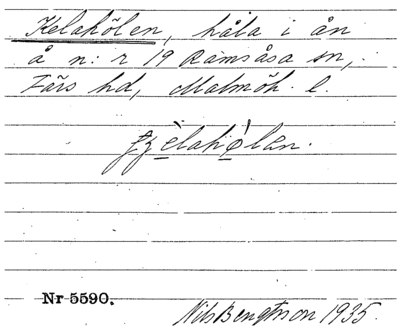 Kelahölen, håla i ån
å n: r 19 Ramsåsa sn,
Färs hd, Malmöh. l.
Nr 5590.
Nils Bengtsson 1935.